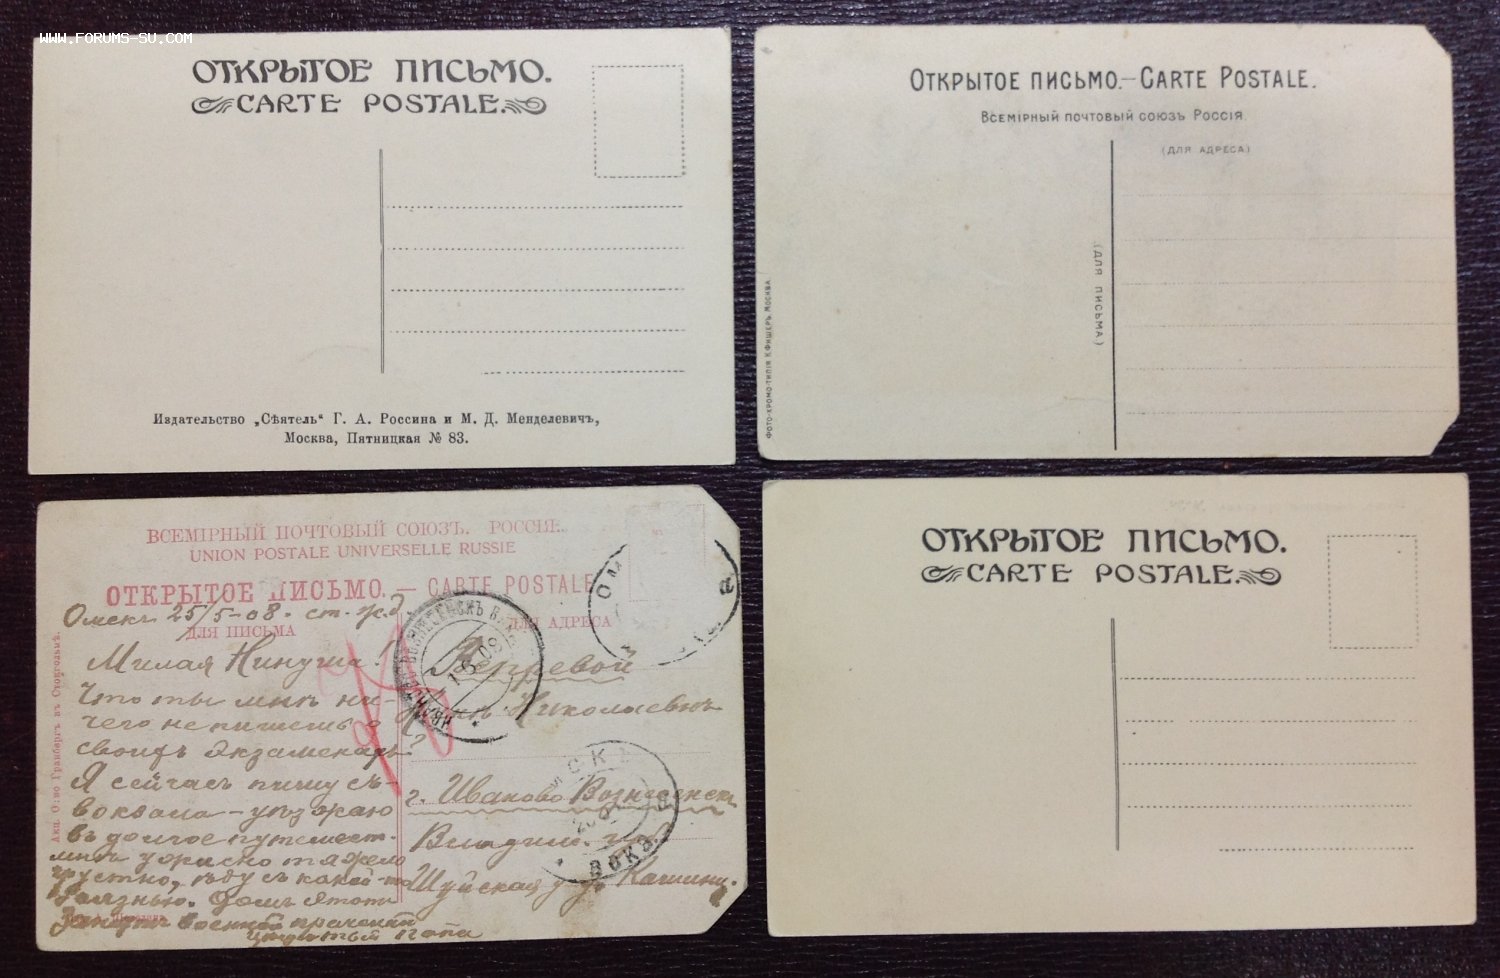 www.forums-su.com
ОТКРЫТОЕ ПИСЬМО.
CARTE POSTALE.
Издательство „Сѣятель“ Г. А. Россина и М. Д. Менделевичъ,
Москва, Пятницкая № 83.
Открытое письмо.—Carte Postale.
Всемірный почтовый союзъ Россія.
(для адреса)
(для письма.)
Фото-хромо-типія К. Фишеръ, Москва.
ВСЕМІРНЫЙ ПОЧТОВЫЙ СОЮЗЪ. РОССІЯ.
UNION POSTALE UNIVERSELLE RUSSIE
ОТКРЫТОЕ ПИСЬМО. — CARTE POSTALE
ДЛЯ ПИСЬМА
ДЛЯ АДРЕСА
Акц. О-во Гранбергъ въ Стокгольмѣ.
Омскъ 25/5-08. ст. ж.д.
Милая Нинуша!
Что ты мнѣ ни-
чего не пишешь о
своихъ экзаменахъ?
Я сейчасъ пишу съ
вокзала – уѣзжаю
въ долгое путешест.
мнѣ ужасно тяжело
грустно, ѣду съ какой-то
болзнью. Домъ
Занятъ
папа
Николаевнѣ
г. Иваново Вознесенскъ
Владим. губ.
Шуйская у. д.
ОТКРЫТОЕ ПИСЬМО.
CARTE POSTALE.